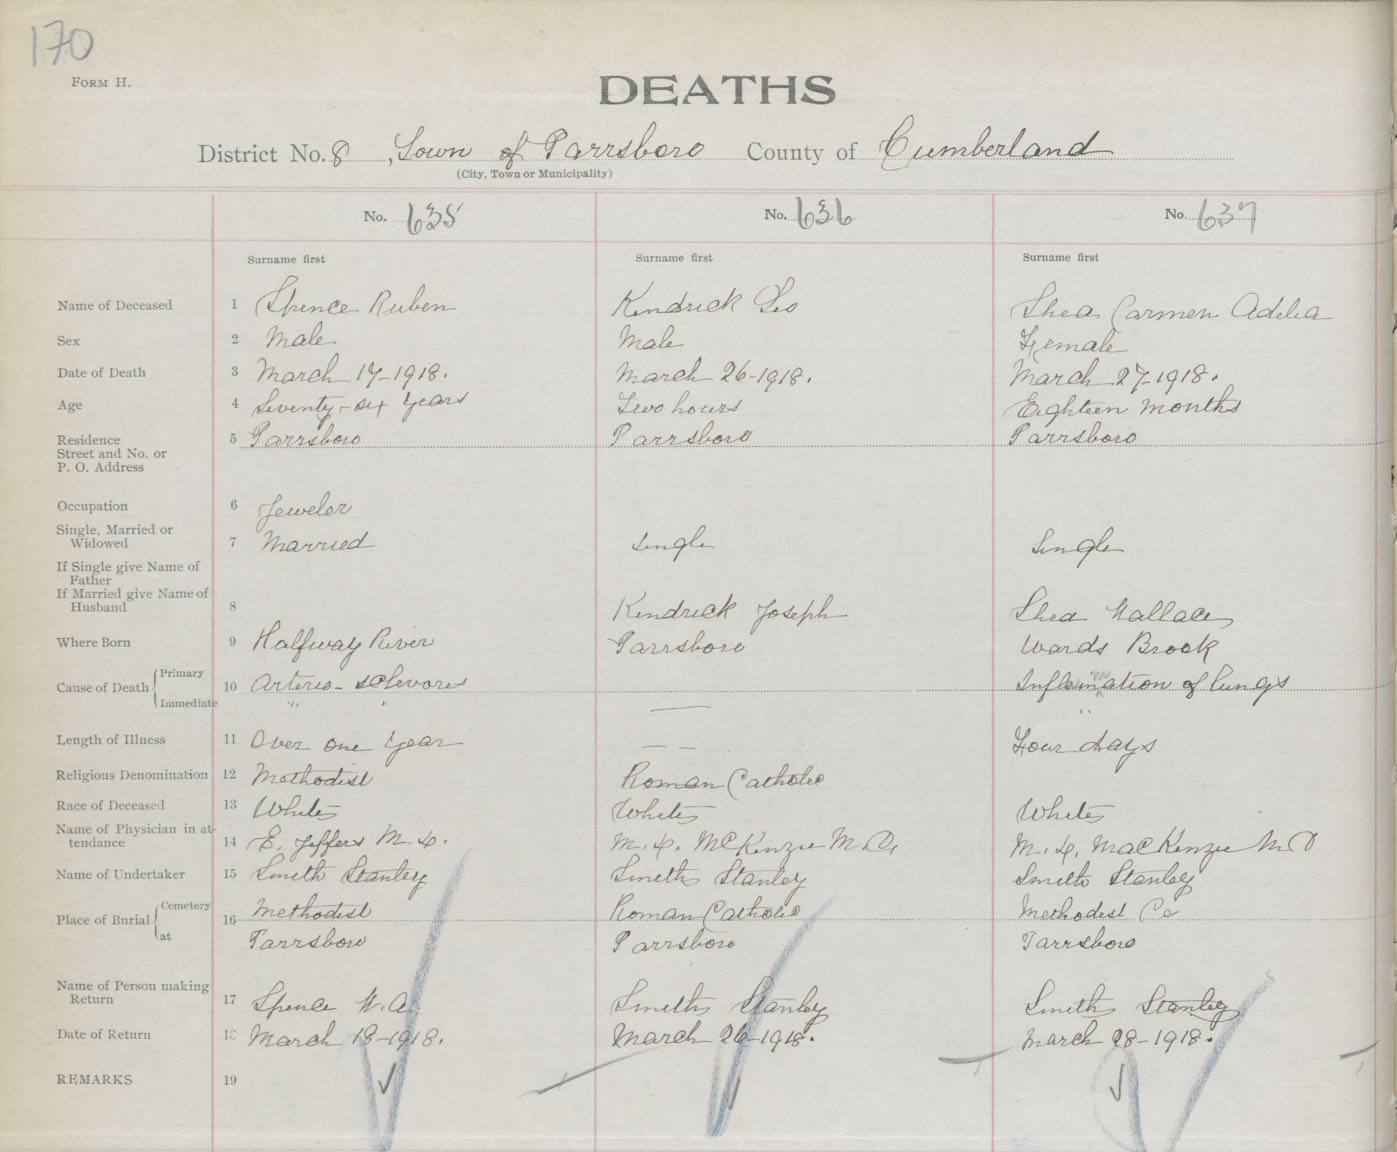 170
FORM H.
DEATHS
District No. 8, Town of Parrsboro County of Cumberland
(City, Town or Municipality)
No. 635 No. 636 No. 637
Surname first Surname first Surname first
Name of Deceased 1 Spence Ruben Kendrick Leo Shea Carmen Adelia
Sex 2 Male Male Female
Date of Death 3 March 17-1918. March 26-1918. March 27-1918.
Age 4 Seventy-six years Two hours Eighteen months
Residence 5 Parrsboro Parrsboro Parrsboro
Street and No. or
P. O. Address
Occupation 6 Jeweler
Single, Married or
Widowed 7 Married Single Single
If Single give Name of
Father
If Married give Name of
Husband 8 Kendrick Joseph Shea Wallace
Where Born 9 Halfway River Parrsboro Wards Brook
Cause of Death { Primary 10 Arterio- Inflammation of lungs
Immediate " " — "
Length of Illness 11 Over one year — — Four days
Religious Denomination 12 Methodist Roman Catholic
Race of Deceased 13 White White White
Name of Physician in at-
tendance 14 E. Jeffers M.D. M.D. McKenzie M.D. M.D. MacKenzie M.D
Name of Undertaker 15 Smith Stanley Smith Stanley Smith Stanley
Place of Burial { Cemetery 16 Methodist Roman Catholic Methodist Ce
at Parrsboro Parrsboro Parrsboro
Name of Person making
Return 17 Spence W. A. Smith Stanley Smith Stanley
Date of Return 18 March 18-1918. March 26-1918. March 28-1918.
REMARKS 19